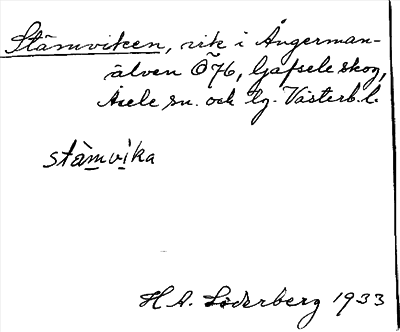 Stämviken, vik i Ångerman-
älven Ö76, Gafsele skog,
Åsele sn. och lg. Västerb. l.
stàmvika
H A. Söderberg 1933